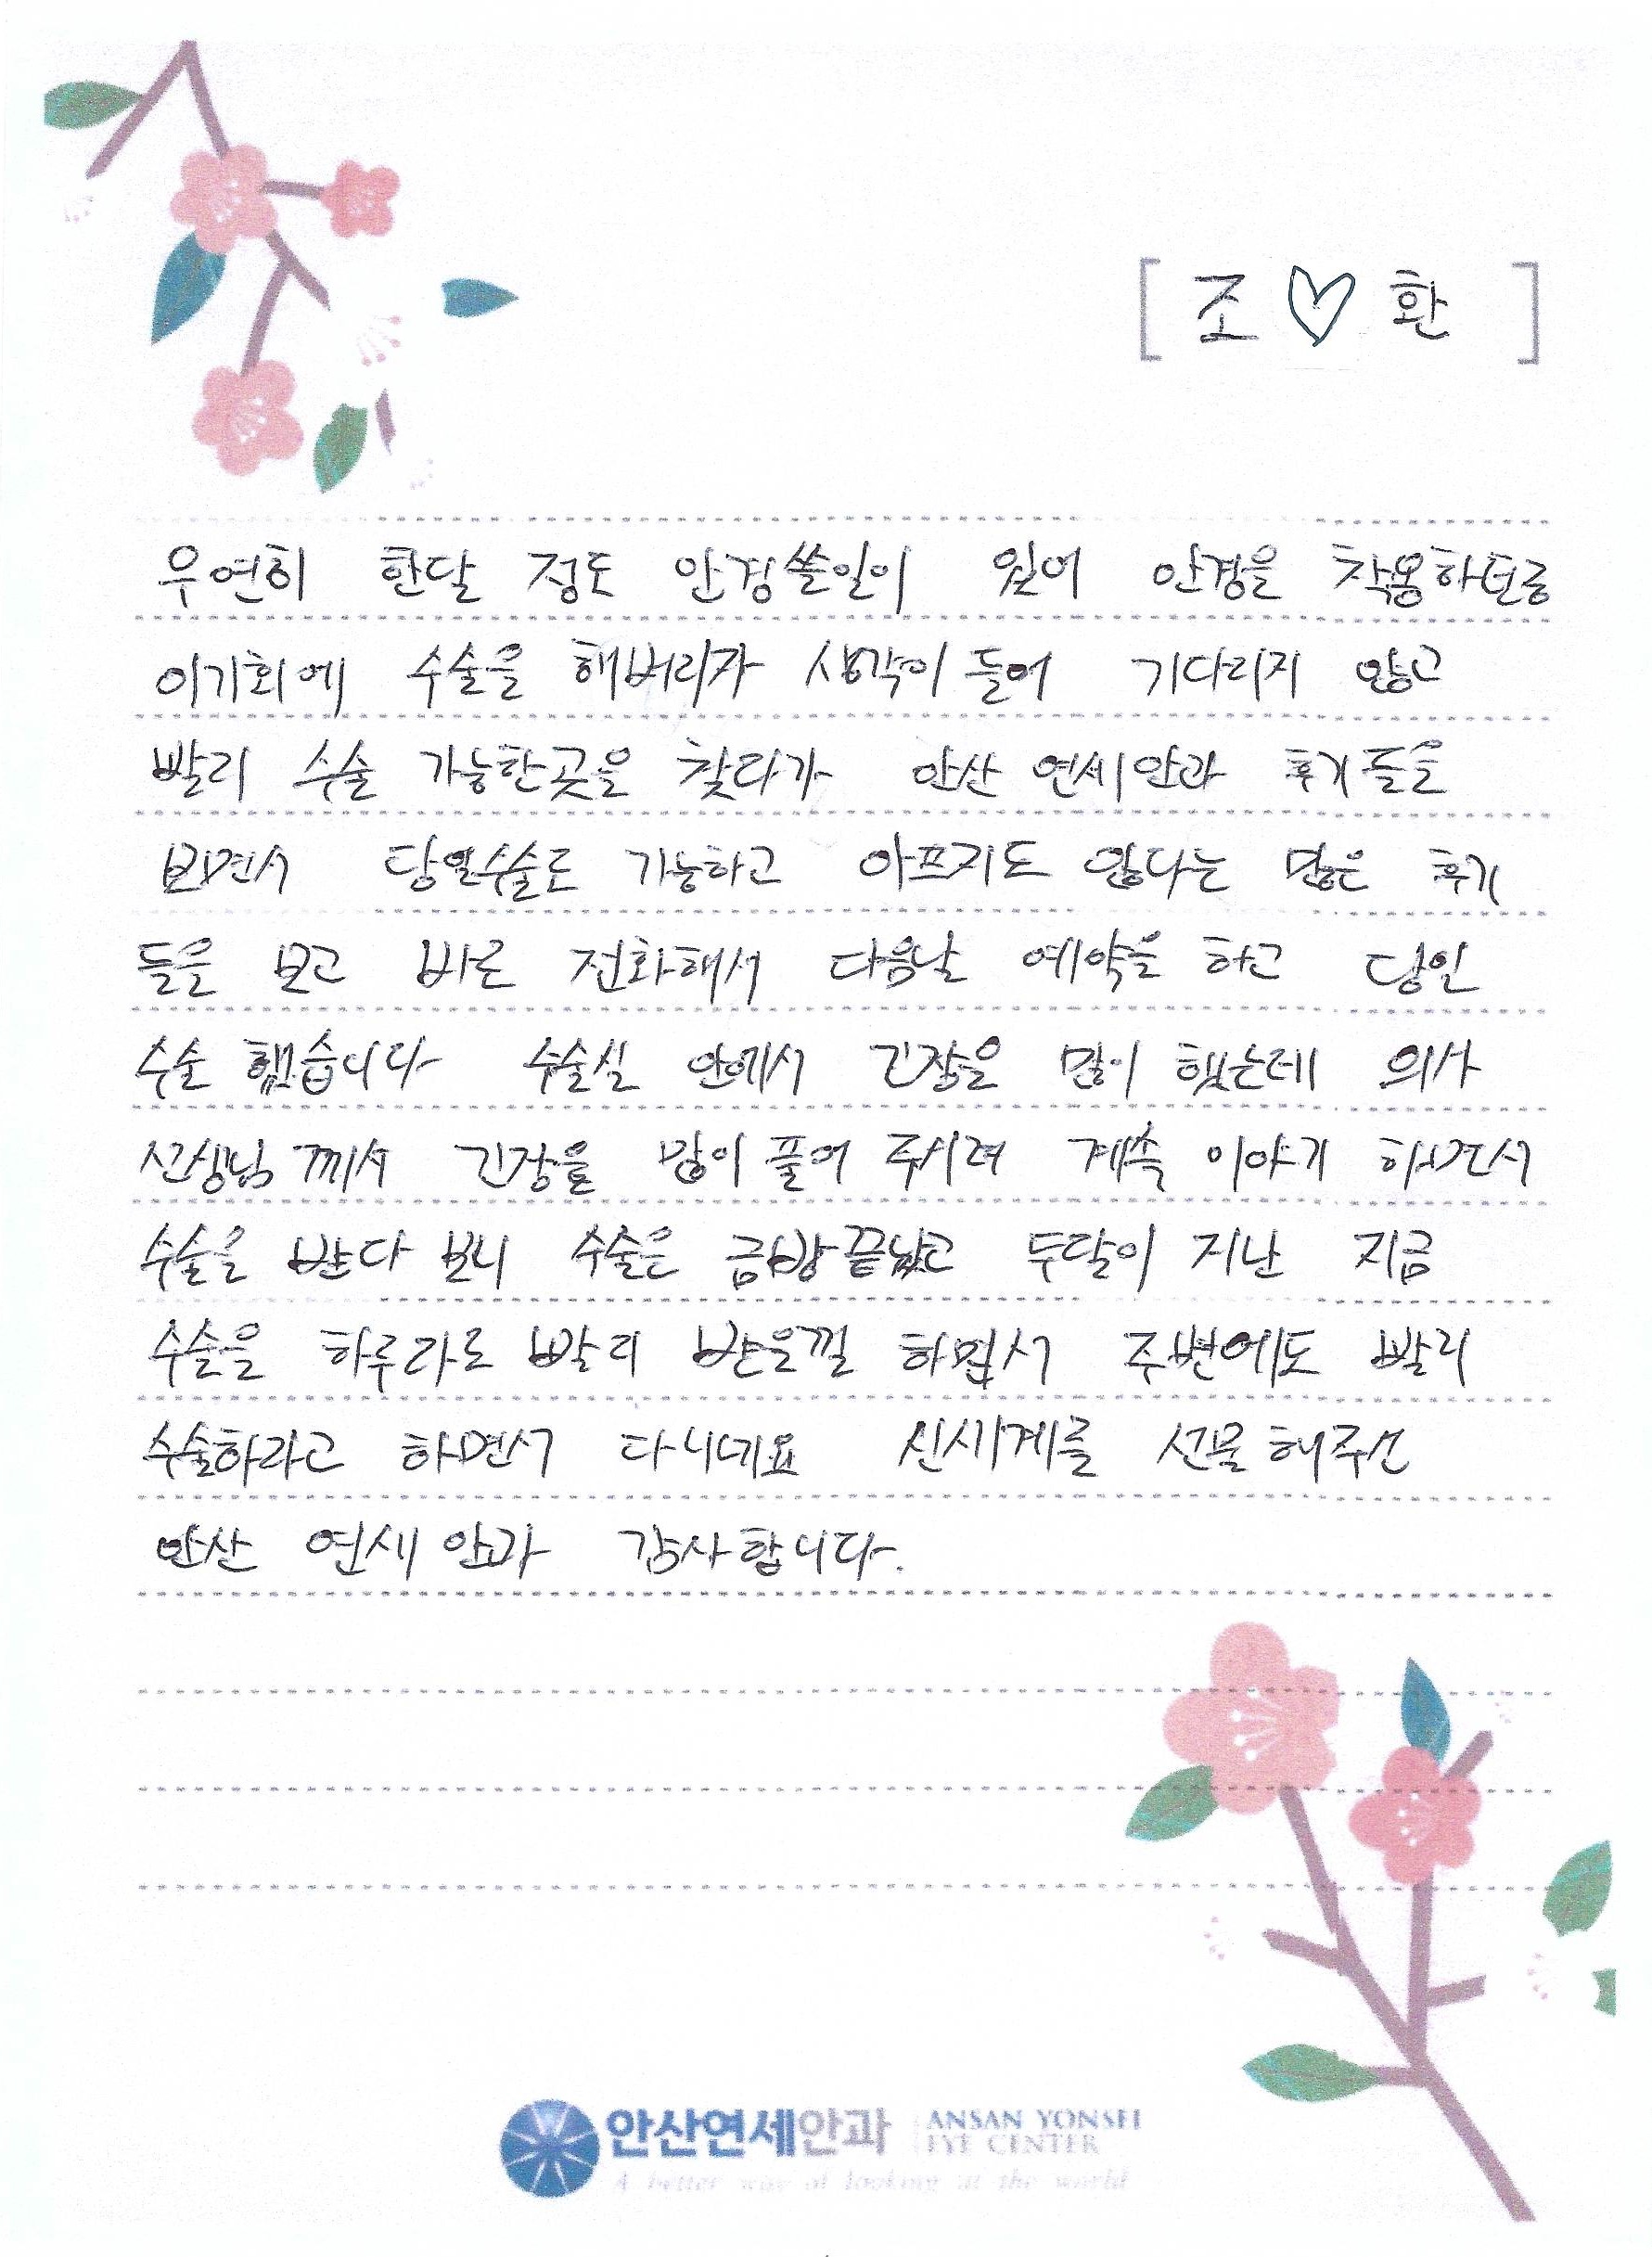 [ 조♡환 ]
우연히 한달 정도 안경쓸일이 있어 안경을 착용하던중
이기회에 수술을 해버리자 생각이 들어 기다리지 않고
빨리 수술 가능한곳을 찾다가 안산 연세안과 후기들을
보면서 당일수술도 가능하고 아프지도 않다는 많은 후기
들을 보고 바로 전화해서 다음날 예약을 하고 당일
수술 했습니다 수술실 안에서 긴장을 많이 했는데 의사
선생님 께서 긴장을 많이 풀어 주시려 계속 이야기 하면서
수술을 받다 보니 수술은 금방 끝났고 두달이 지난 지금
수술을 하루라도 빨리 받을껄 하면서 주변에도 빨리
수술하라고 하면서 다니네요 신세계를 선물 해주신
안산 연세 안과 감사합니다.
안산연세안과 ANSAN YONSEI
EYE CENTER
A better way of looking at the world